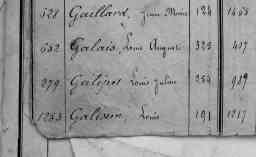 528 Gaillard, Jean Marie 124 1453
632 Galais, Louis Auguste 325 407
279 Galipot Louis Julien 254 919
1253 Galisson Louis 191 1217